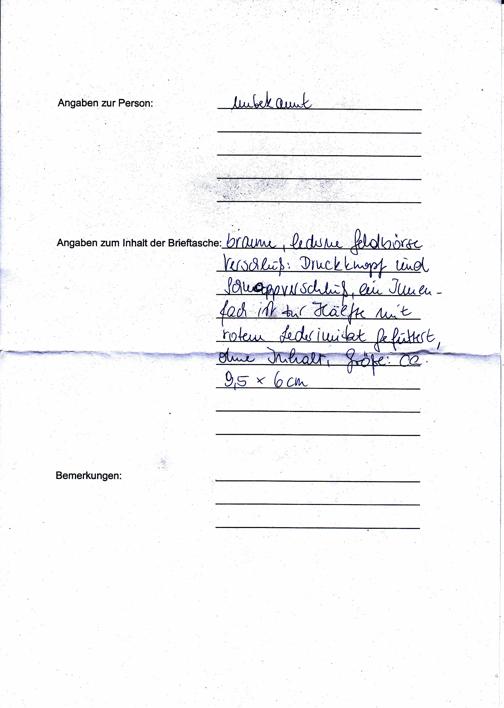 Angaben zur Person: unbekannt
Angaben zum Inhalt der Brieftasche: braune, lederne Geldbörse
Verschluß: Druckknopf und
Schnappverschluß, ein Innen-
fach ist zur Hälfte mit
rotem Lederimitat gefüttert,
ohne Inhalt, Größe: ca.
9,5 x 6 cm
Bemerkungen: